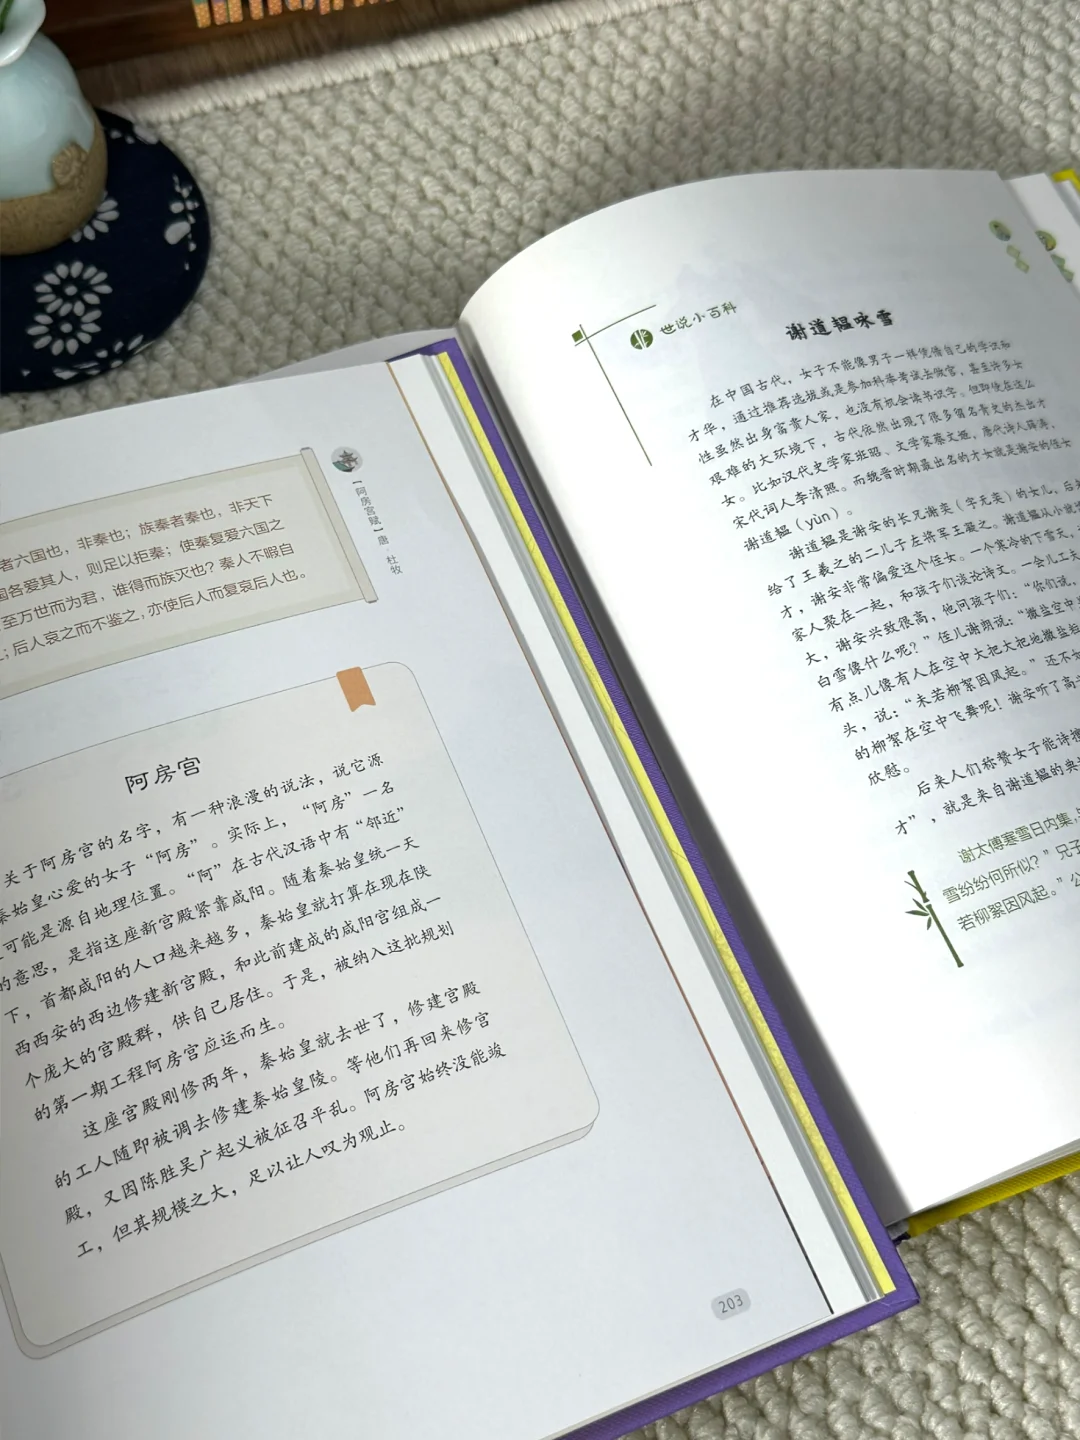 者六国也，非秦也；族秦者秦也，非天下
国各爱其人，则足以拒秦；使秦复爱六国之
至万世而为君，谁得而族灭也？秦人不暇自
；后人哀之而不鉴之，亦使后人而复哀后人也。
【阿房宫赋】唐·杜牧
阿房宫
关于阿房宫的名字，有一种浪漫的说法，说它源
秦始皇心爱的女子“阿房”。实际上，“阿房”一名
可能是源自地理位置。“阿”在古代汉语中有“邻近”
的意思，是指这座新宫殿紧靠咸阳。随着秦始皇统一天
下，首都咸阳的人口越来越多，秦始皇就打算在现在陕
西西安的西边修建新宫殿，和此前建成的咸阳宫组成一
个庞大的宫殿群，供自己居住。于是，被纳入这批规划
的第一期工程阿房宫应运而生。
这座宫殿刚修两年，秦始皇就去世了，修建宫殿
的工人随即被调去修建秦始皇陵。等他们再回来修宫
殿，又因陈胜吴广起义被征召平乱。阿房宫始终没能竣
工，但其规模之大，足以让人叹为观止。
203
世说小百科
谢道韫咏雪
在中国古代，女子不能像男子一样凭借自己的学识和
才华，通过推荐选拔或是参加科举考试去做官，甚至许多女
性虽然出身富贵人家，也没有机会读书识字。但即使在这么
艰难的大环境下，古代依然出现了很多留名青史的杰出才
女。比如汉代史学家班昭、文学家蔡文姬，唐代诗人薛涛、
宋代词人李清照。而魏晋时期最出名的才女就是谢安的侄女
谢道韫（yùn）。
谢道韫是谢安的长兄谢奕（字无奕）的女儿，后来
给了王羲之的二儿子左将军王凝之。谢道韫从小就
才，谢安非常偏爱这个侄女。一个寒冷的下雪天，
家人聚在一起，和孩子们谈论诗文。一会儿工夫
大，谢安兴致很高，他问孩子们：“你们说，
白雪像什么呢？”侄儿谢朗说：“撒盐空中
有点儿像有人在空中大把大把地撒盐
头，说：“未若柳絮因风起。”还不
的柳絮在空中飞舞呢！谢安听了高
欣慰。
后来人们称赞女子能诗擅
才”，就是来自谢道韫的典
谢太傅寒雪日内集，
雪纷纷何所似？”兄子
若柳絮因风起。”公